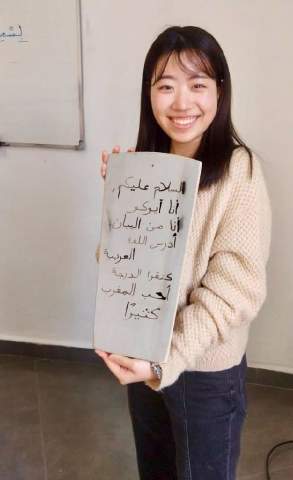 السلام عليكم,
أنا أيوكو
أنا من اليابان,
أدرس اللغة
العربية
كنقرا الدريجة
أحب المغرب
كثيرًا